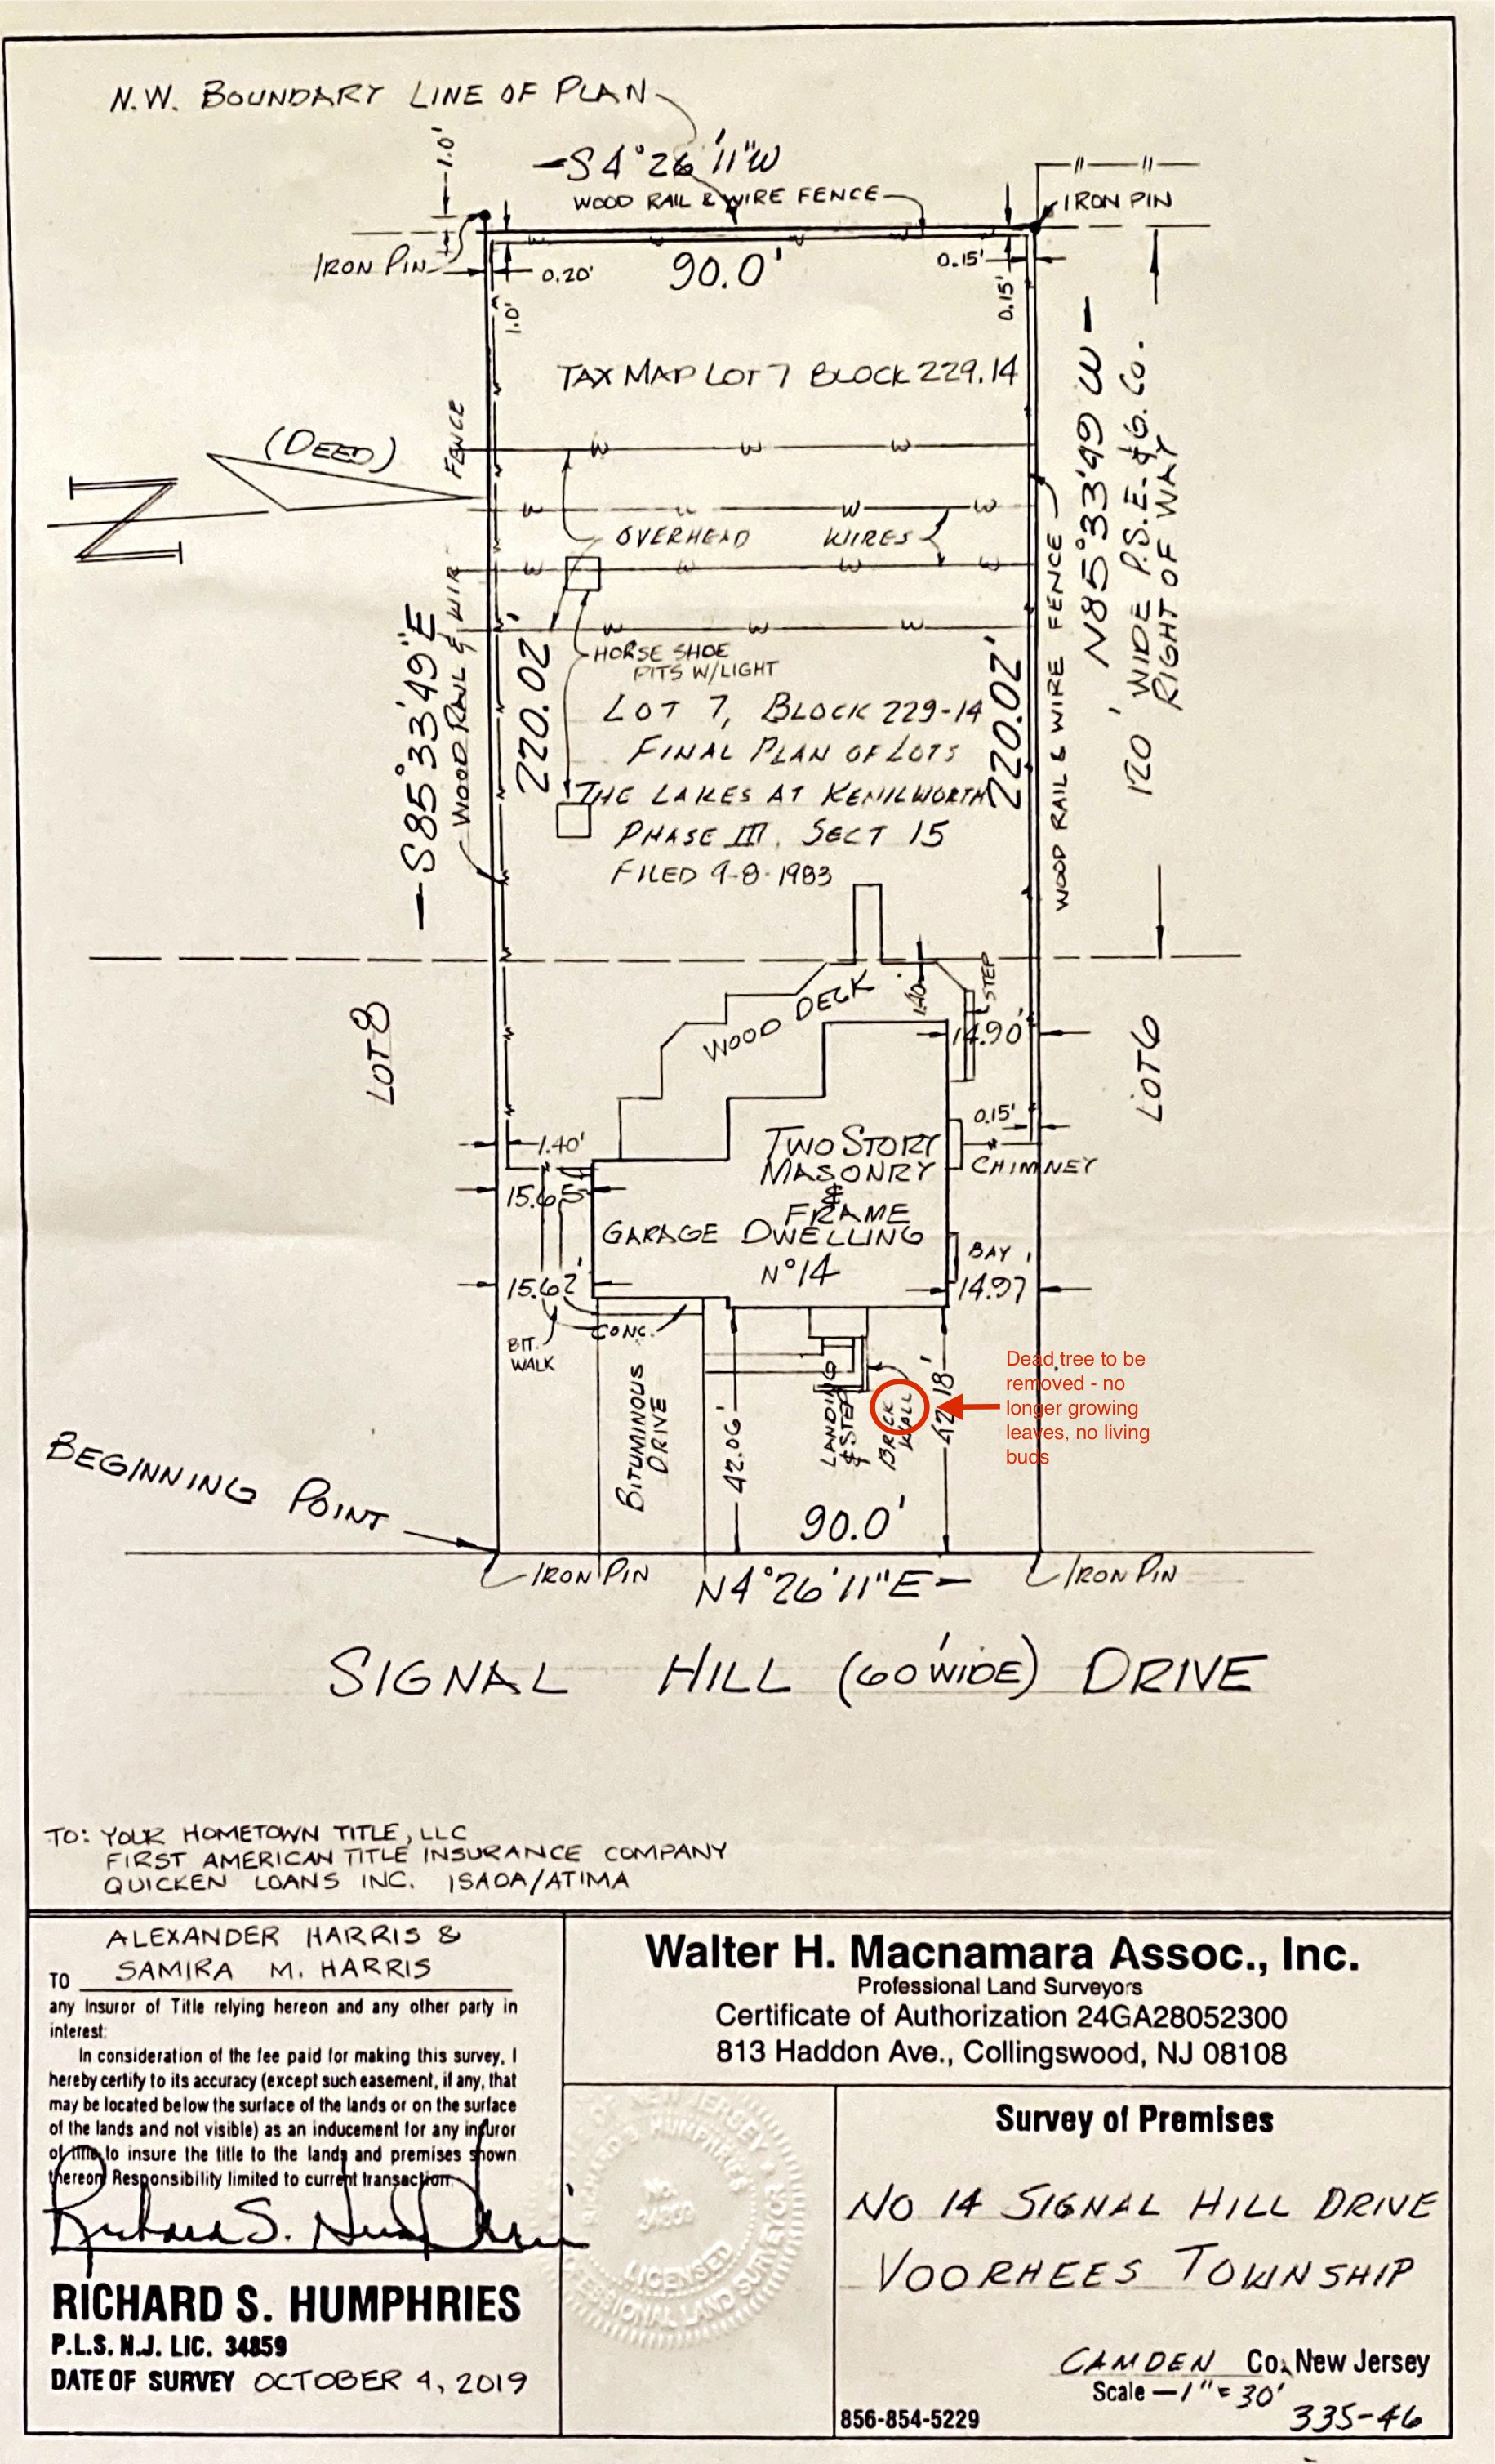 N.W. BOUNDARY LINE OF PLAN
1.0'
S4°26'11"W
WOOD RAIL & WIRE FENCE
IRON PIN
IRON PIN
0.20'
90.0'
0.15'
1.0'
0.15'
TAX MAP LOT 7 BLOCK 229.14
(DEED)
N
FENCE
W W W
W W W
OVERHEAD WIRES
W W W W
W W W
HORSE SHOE
PITS W/LIGHT
S85°33'49"E
WOOD RAIL & WIR
220.02'
220.02'
WOOD RAIL & WIRE FENCE
N85°33'49 W
120' WIDE P.S.E. & G. CO.
RIGHT OF WAY
LOT 7, BLOCK 229-14
FINAL PLAN OF LOTS
THE LAKES AT KENILWORTH
PHASE III, SECT 15
FILED 9-8-1983
LOT 8
LOT 6
WOOD DECK
1.40'
STEP
14.90'
1.40'
0.15'
TWO STORY
MASONRY
&
FRAME
CHIMNEY
15.65'
GARAGE DWELLING
Nº14
BAY
15.62'
14.97
BIT.
WALK
CONC.
BITUMINOUS
DRIVE
42.06'
LANDING
& STEP
BRICK
WALL
42.18'
Dead tree to be
removed - no
longer growing
leaves, no living
buds
BEGINNING POINT
90.0'
IRON PIN
N4°26'11"E
IRON PIN
SIGNAL HILL (60' WIDE) DRIVE
TO: YOUR HOMETOWN TITLE, LLC
FIRST AMERICAN TITLE INSURANCE COMPANY
QUICKEN LOANS INC. ISAOA/ATIMA
ALEXANDER HARRIS &
TO SAMIRA M. HARRIS
any Insuror of Title relying hereon and any other party in
interest:
In consideration of the fee paid for making this survey, I
hereby certify to its accuracy (except such easement, if any, that
may be located below the surface of the lands or on the surface
of the lands and not visible) as an inducement for any insuror
of title to insure the title to the lands and premises shown
thereon. Responsibility limited to current transaction.
Richard S. Humphries
RICHARD S. HUMPHRIES
P.L.S. N.J. LIC. 34859
DATE OF SURVEY OCTOBER 4, 2019
Walter H. Macnamara Assoc., Inc.
Professional Land Surveyors
Certificate of Authorization 24GA28052300
813 Haddon Ave., Collingswood, NJ 08108
OF NEW JERSEY
RICHARD S HUMPHRIES
No.
34859
LICENSED
PROFESSIONAL LAND SURVEYOR
Survey of Premises
NO 14 SIGNAL HILL DRIVE
VOORHEES TOWNSHIP
CAMDEN Co., New Jersey
Scale - 1" = 30'
856-854-5229
335-46